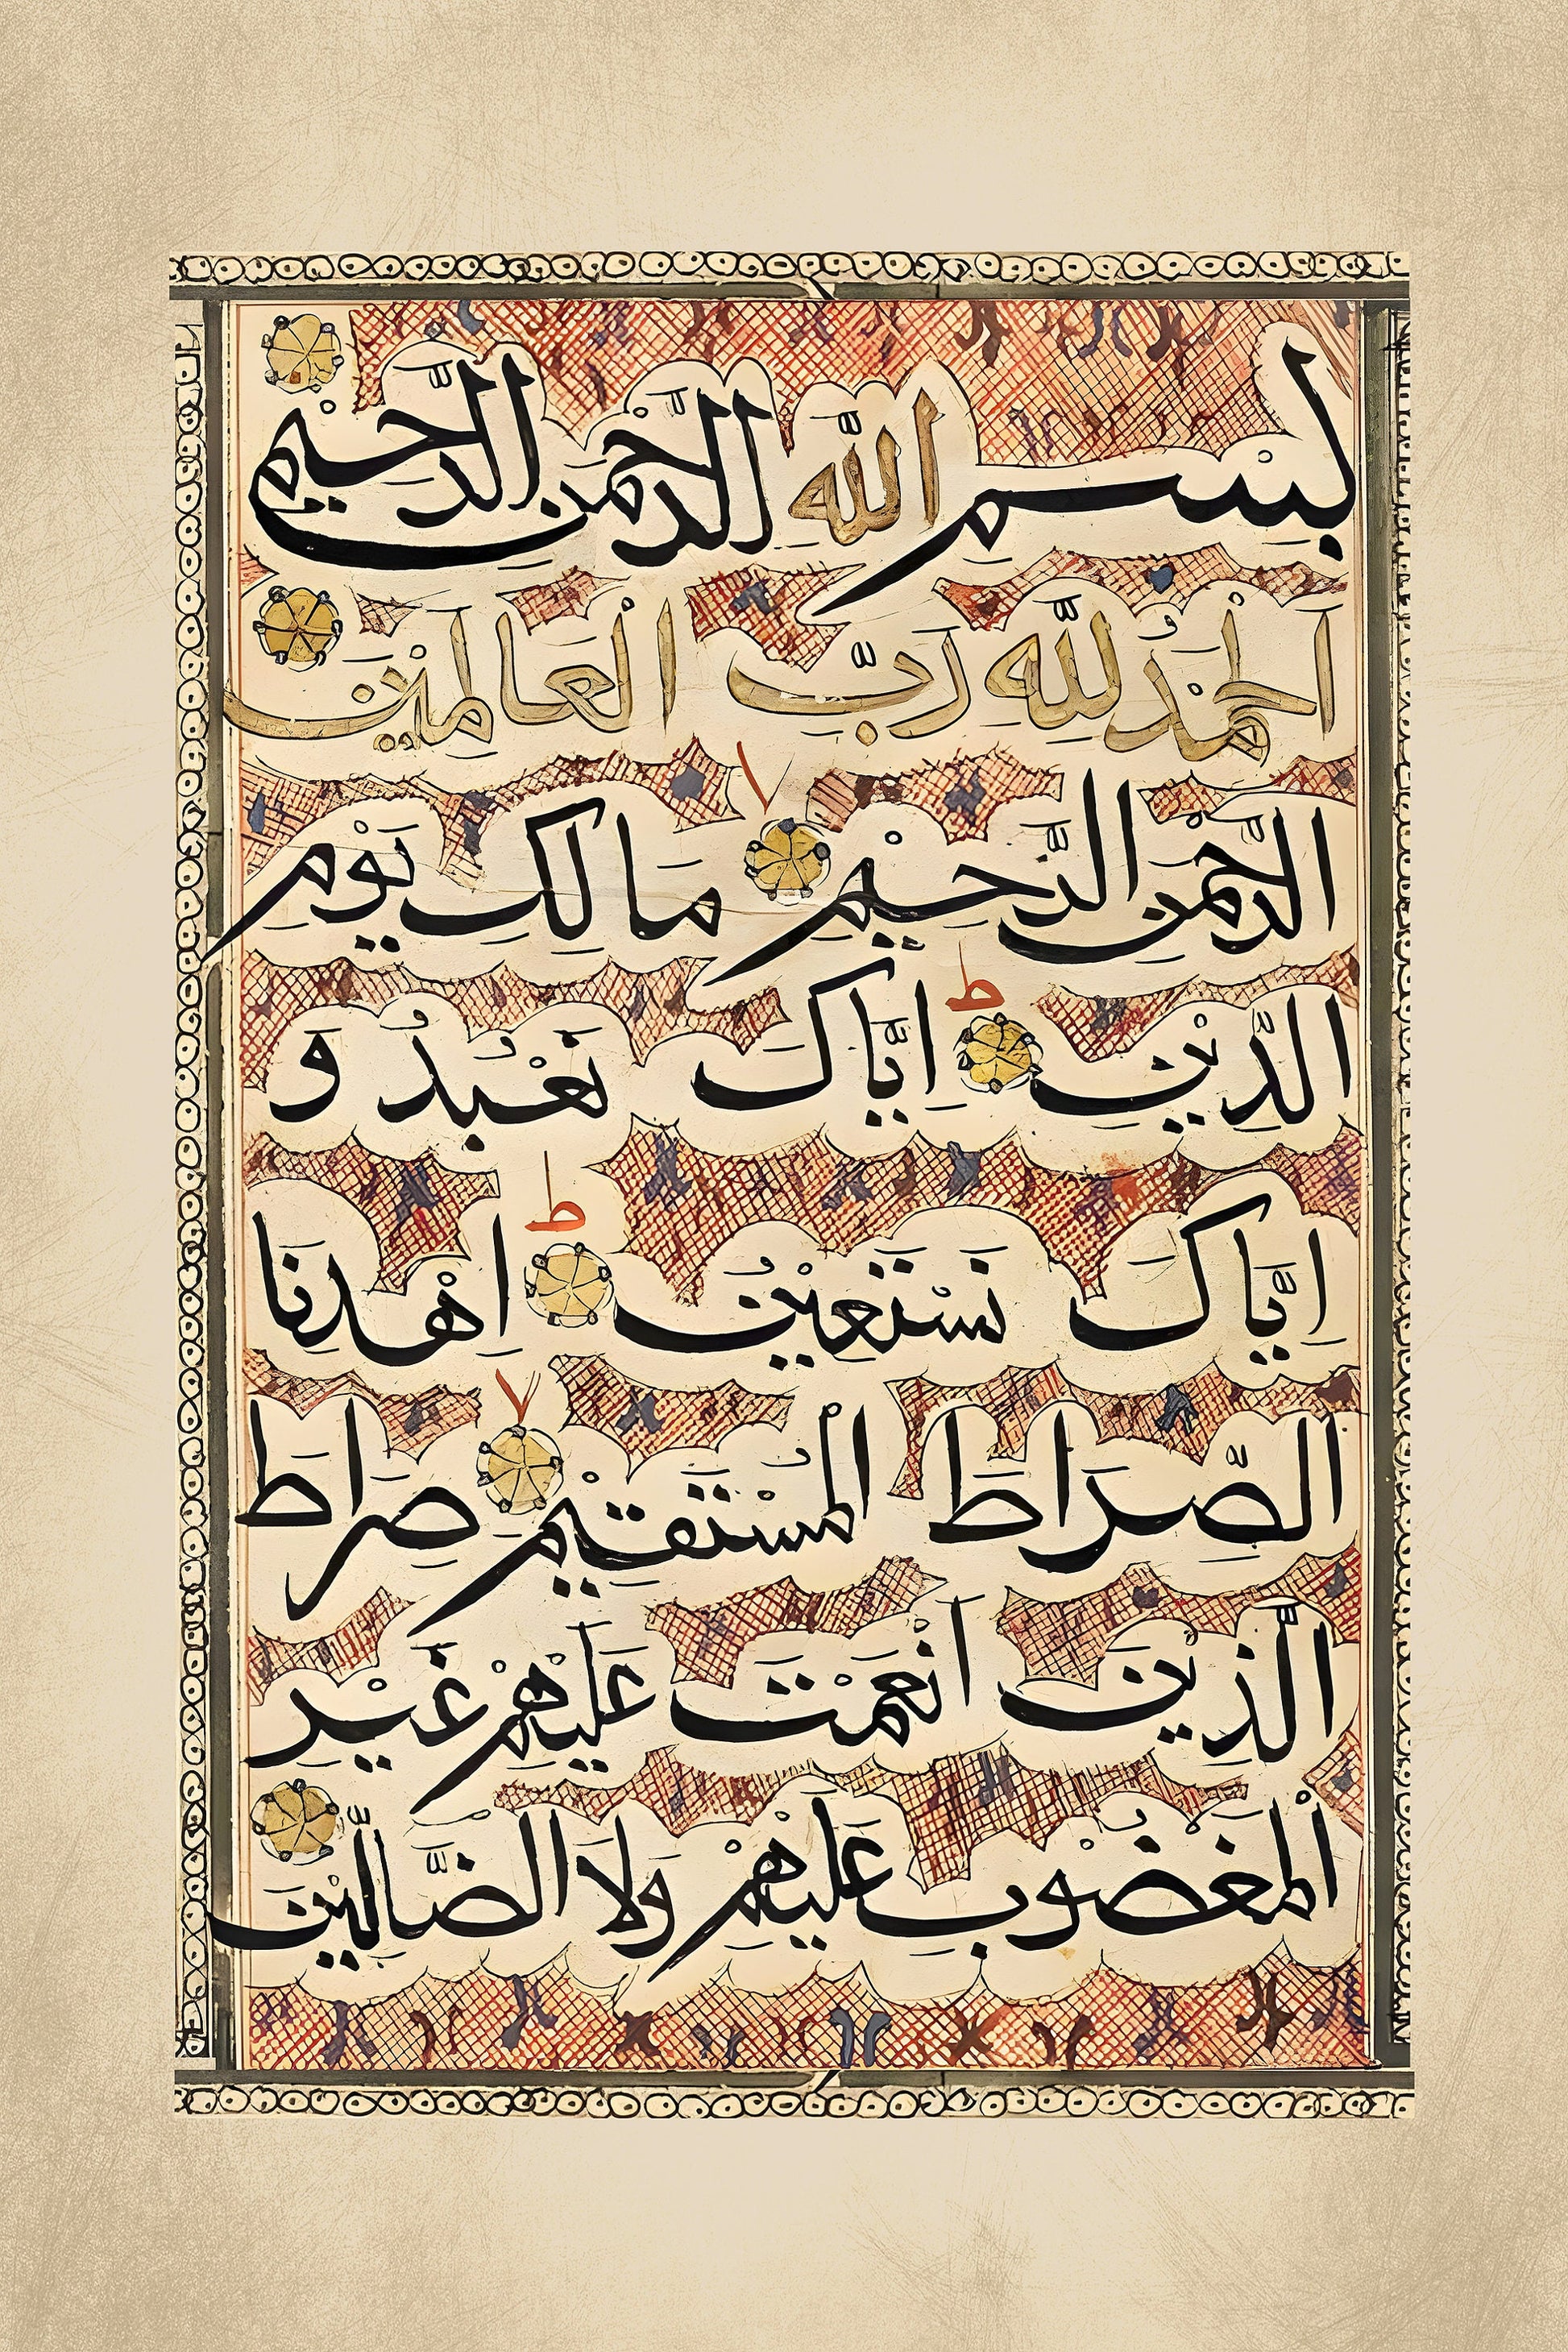 بِسْمِ اللّٰهِ الرَّحْمٰنِ الرَّحِيْمِ
اَلْحَمْدُ لِلّٰهِ رَبِّ الْعَالَمِيْنَ
الرَّحْمٰنِ الرَّحِيْمِ مَالِكِ يَوْمِ
الدِّيْنِ ط اِيَّاكَ نَعْبُدُ وَ
اِيَّاكَ نَسْتَعِيْنُ ط اِهْدِنَا
الصِّرَاطَ الْمُسْتَقِيْمَ صِرَاطَ
الَّذِيْنَ اَنْعَمْتَ عَلَيْهِمْ غَيْرِ
الْمَغْضُوْبِ عَلَيْهِمْ وَلَا الضَّالِّيْنَ